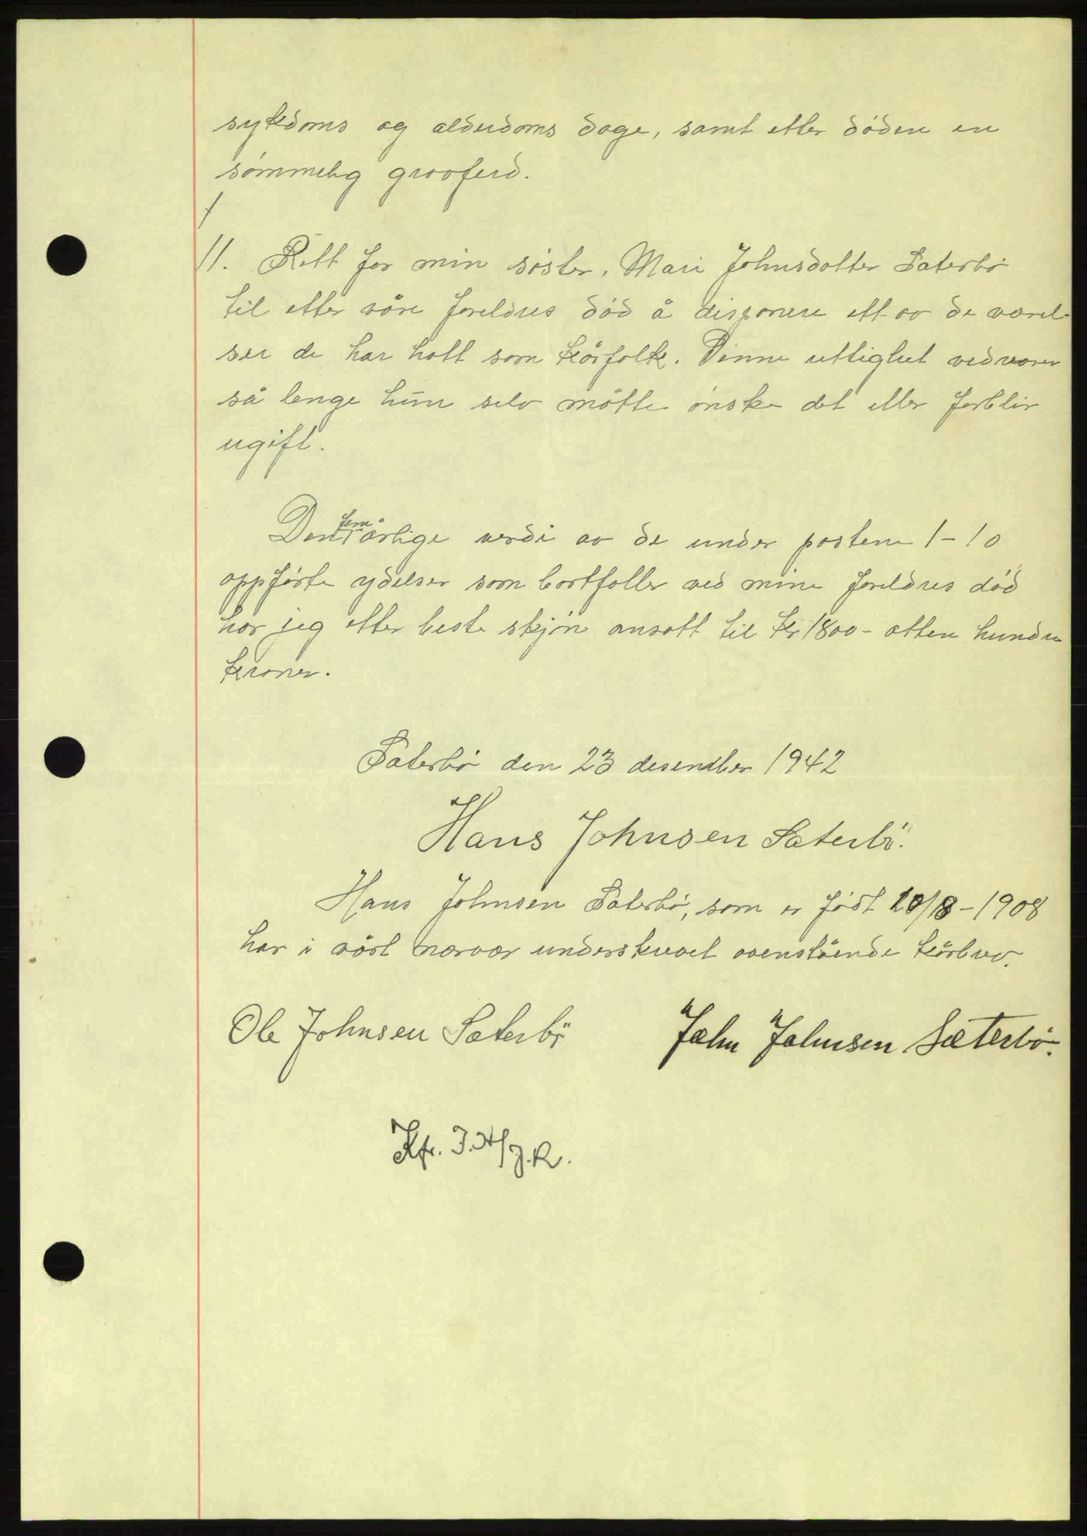 sykdoms og alderdoms dage, samt etter döden en
sömmelig gravferd.
11. Rett for min söster, Mari Johnsdotter Sæterbö
til etter våre foreldres död å disponere ett av de værel-
ser de har hatt som kårfolk. Denne rettighet vedvarer
så lenge hun selv måtte önske det eller forblir
ugift.
Den fem årlige verdi av de under postene 1-10
oppförte ydelser som bortfaller ved mine foreldres död
har jeg etter beste skjön ansatt til kr 1800- atten hundre
kroner.
Sæterbö den 23 desember 1942
Hans Johnsen Sæterbö.
Hans Johnsen Sæterbö, som er födt 10/8-1908
har i vårt nærvær underskrevet ovenstående kårbrev.
Ole Johnsen Sæterbö John Johnsen Sæterbö.
Kfr. J.H/J.R.